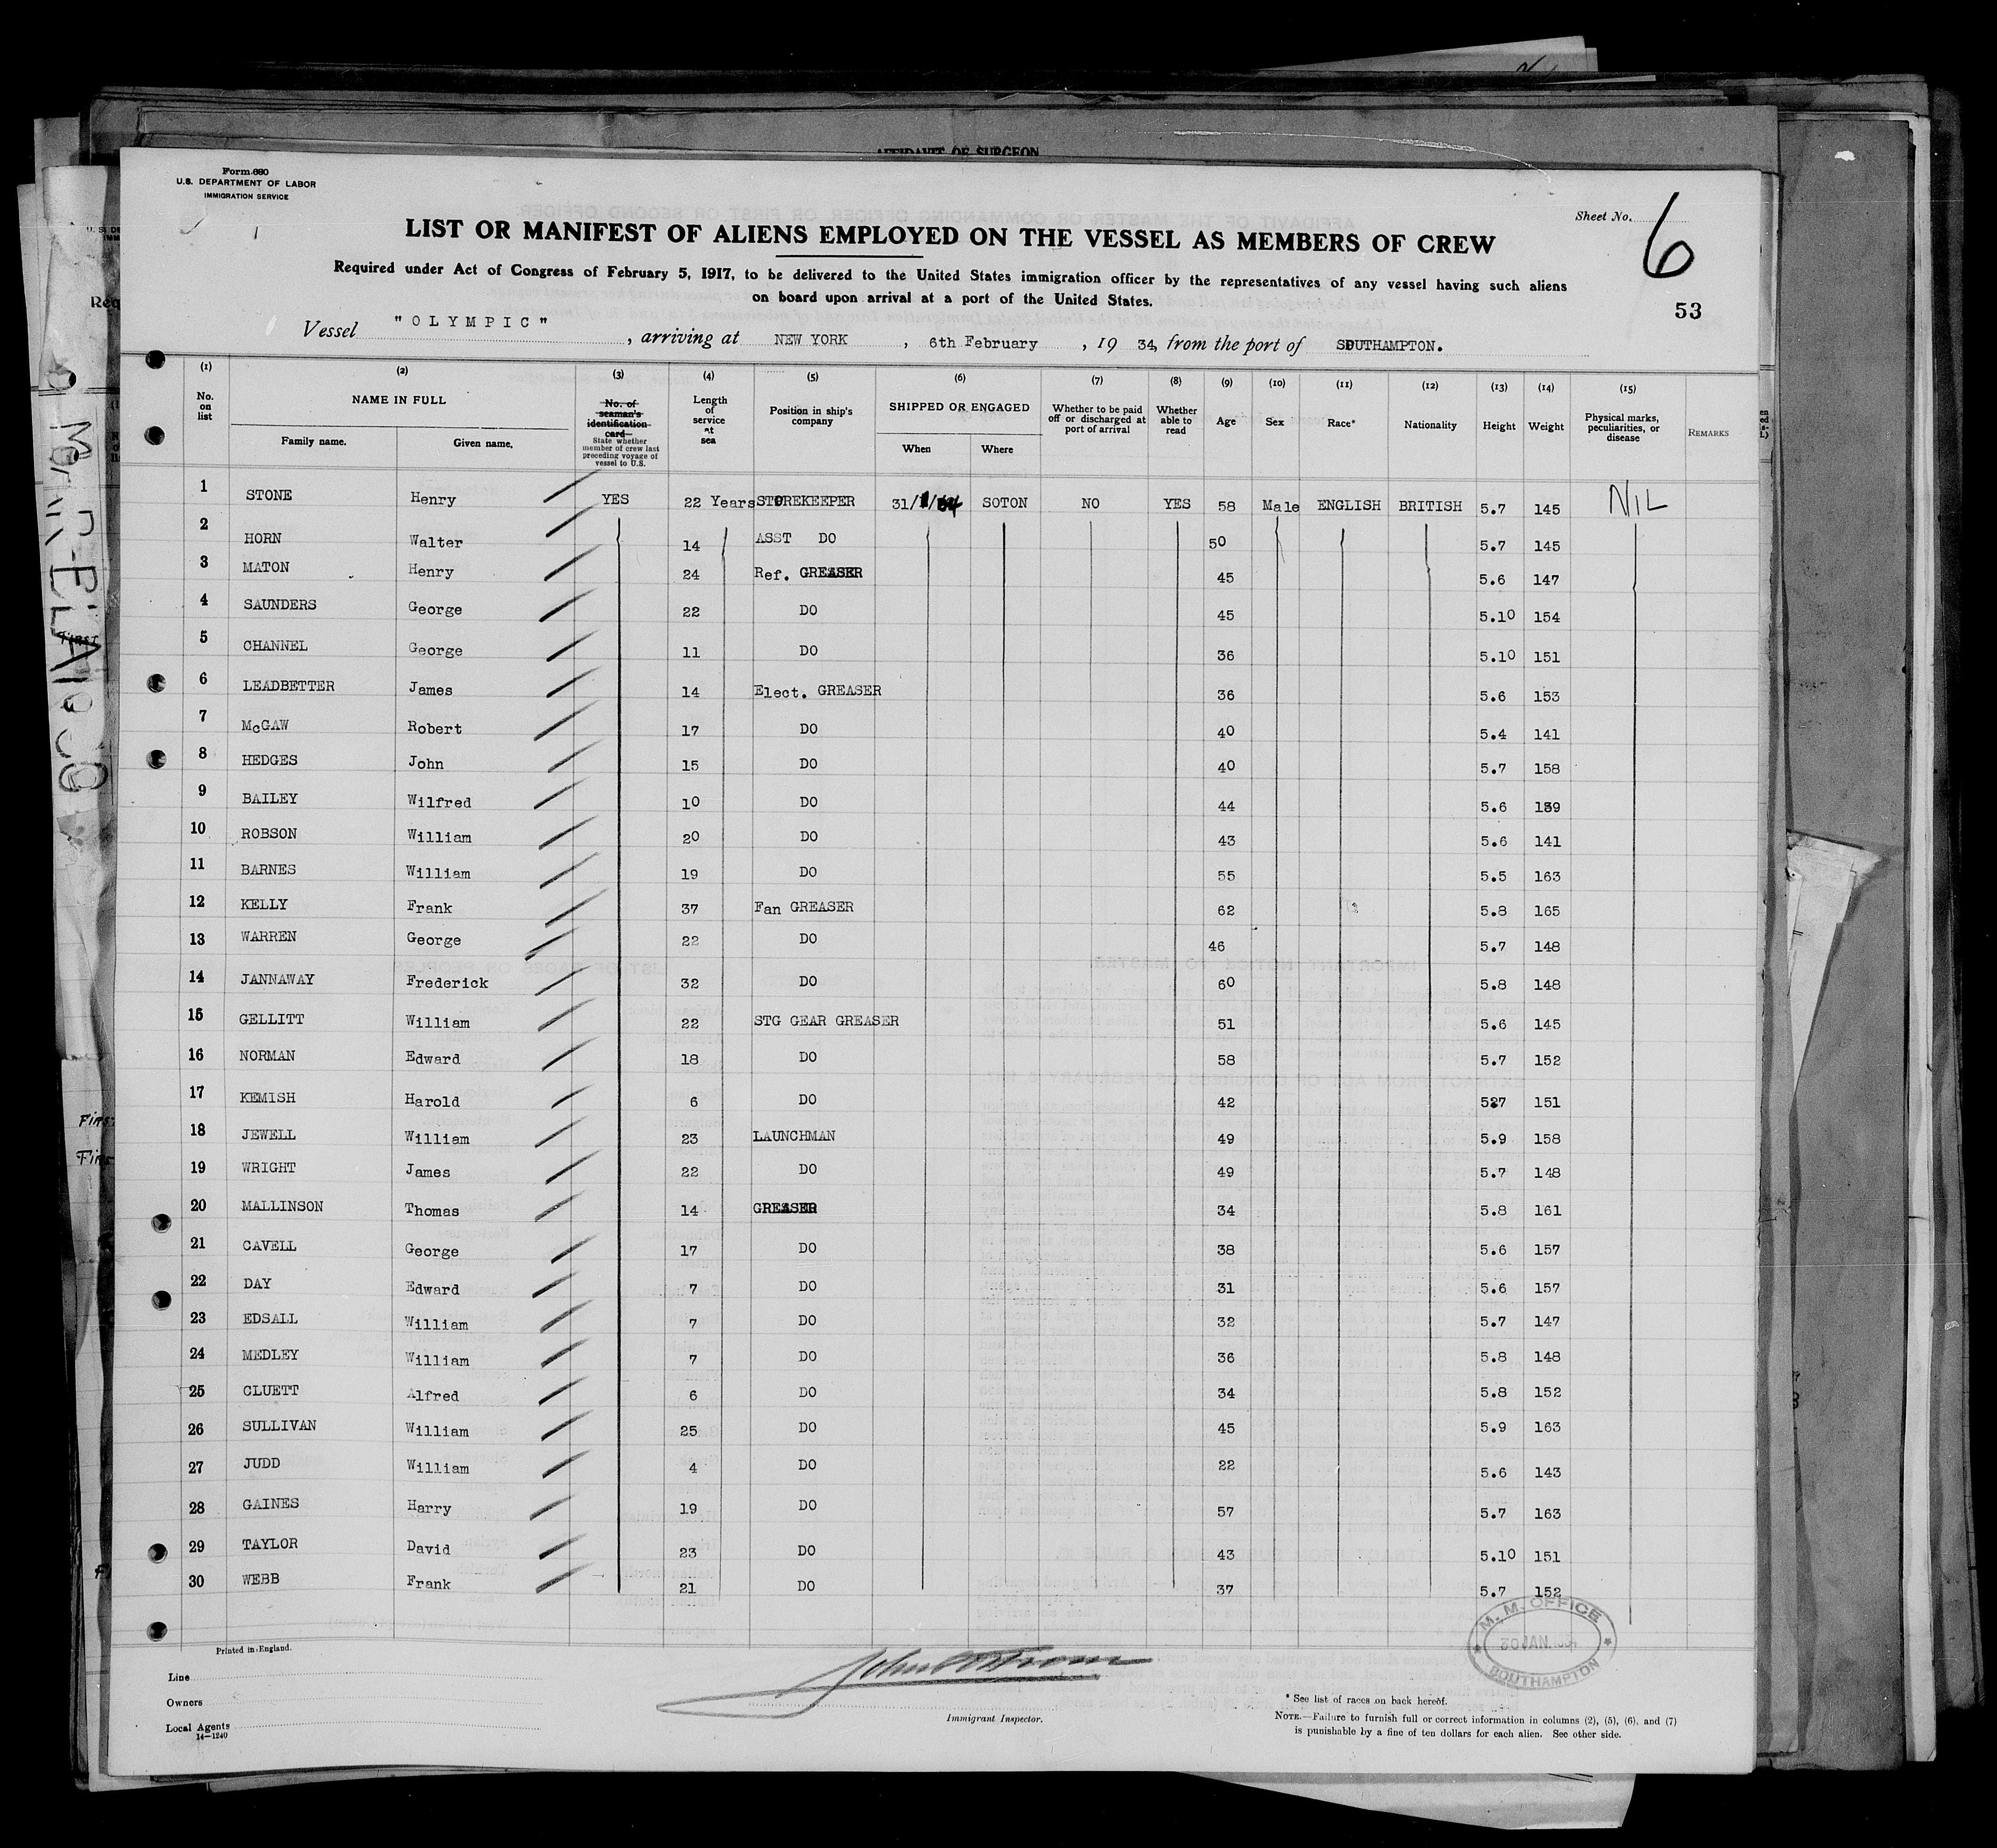 AFFIDAVIT OF SURGEON
Form 680
U.S. DEPARTMENT OF LABOR
IMMIGRATION SERVICE
Sheet No. 6
LIST OR MANIFEST OF ALIENS EMPLOYED ON THE VESSEL AS MEMBERS OF CREW
Required under Act of Congress of February 5, 1917, to be delivered to the United States immigration officer by the representatives of any vessel having such aliens
on board upon arrival at a port of the United States.
53
Vessel "OLYMPIC", arriving at NEW YORK, 6th February, 19 34, from the port of SOUTHAMPTON.
(1) (2) (3) (4) (5) (6) (7) (8) (9) (10) (11) (12) (13) (14) (15)
No. on list NAME IN FULL Family name. Given name. No. of seaman's identification card State whether member of crew last preceding voyage of vessel to U.S. Length of service at sea Position in ship's company SHIPPED OR ENGAGED When Where Whether to be paid off or discharged at port of arrival Whether able to read Age Sex Race* Nationality Height Weight Physical marks, peculiarities, or disease REMARKS
1 STONE Henry YES 22 Years STOREKEEPER 31/1/34 SOTON NO YES 58 Male ENGLISH BRITISH 5.7 145 NIL
2 HORN Walter 14 ASST DO 50 5.7 145
3 MATON Henry 24 Ref. GREASER 45 5.6 147
4 SAUNDERS George 22 DO 45 5.10 154
5 CHANNEL George 11 DO 36 5.10 151
6 LEADBETTER James 14 Elect. GREASER 36 5.6 153
7 McGAW Robert 17 DO 40 5.4 141
8 HEDGES John 15 DO 40 5.7 158
9 BAILEY Wilfred 10 DO 44 5.6 139
10 ROBSON William 20 DO 43 5.6 141
11 BARNES William 19 DO 55 5.5 163
12 KELLY Frank 37 Fan GREASER 62 5.8 165
13 WARREN George 22 DO 46 5.7 148
14 JANNAWAY Frederick 32 DO 60 5.8 148
15 GELLITT William 22 STG GEAR GREASER 51 5.6 145
16 NORMAN Edward 18 DO 58 5.7 152
17 KEMISH Harold 6 DO 42 5.7 151
18 JEWELL William 23 LAUNCHMAN 49 5.9 158
19 WRIGHT James 22 DO 49 5.7 148
20 MALLINSON Thomas 14 GREASER 34 5.8 161
21 CAVELL George 17 DO 38 5.6 157
22 DAY Edward 7 DO 31 5.6 157
23 EDSALL William 7 DO 32 5.7 147
24 MEDLEY William 7 DO 36 5.8 148
25 CLUETT Alfred 6 DO 34 5.8 152
26 SULLIVAN William 25 DO 45 5.9 163
27 JUDD William 4 DO 22 5.6 143
28 GAINES Harry 19 DO 57 5.7 163
29 TAYLOR David 23 DO 43 5.10 151
30 WEBB Frank 21 DO 37 5.7 152
M. M. OFFICE
30 JAN. 1934
SOUTHAMPTON
Printed in England.
Line
Owners
Local Agents
14—1240
Immigrant Inspector.
* See list of races on back hereof.
NOTE.—Failure to furnish full or correct information in columns (2), (5), (6), and (7)
is punishable by a fine of ten dollars for each alien. See other side.